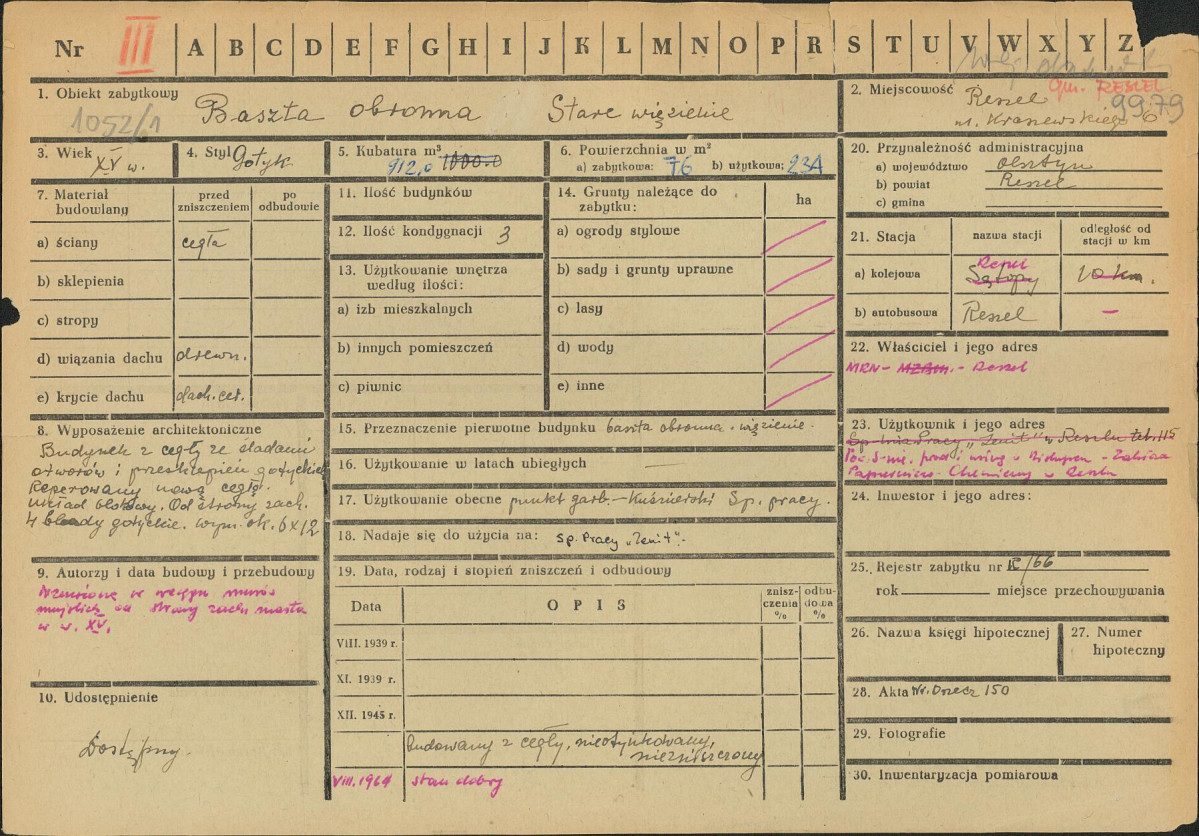 Nr III A B C D E F G H I J K L M N O P R S T U V W X Y Z
1. Obiekt zabytkowy
Baszta obronna Stare więzienie
1052/1
2. Miejscowość Reszel
gm. RESZEL
ul. Kraszewskiego 6
9979
3. Wiek XV w.
4. Styl Gotyk
5. Kubatura m³
912,0 1000.0
6. Powierzchnia w m²
a) zabytkowa: 76 b) użytkowa: 234
20. Przynależność administracyjna
a) województwo olsztyn
b) powiat Reszel
c) gmina
7. Materiał budowlany
przed zniszczeniem
po odbudowie
a) ściany cegła
b) sklepienia
c) stropy
d) wiązania dachu drewn.
e) krycie dachu dach. cer.
11. Ilość budynków
12. Ilość kondygnacji 3
13. Użytkowanie wnętrza
według ilości:
a) izb mieszkalnych
b) innych pomieszczeń
c) piwnic
14. Grunty należące do
zabytku:
ha
a) ogrody stylowe
b) sady i grunty uprawne
c) lasy
d) wody
e) inne
21. Stacja
nazwa stacji
odległość od
stacji w km
a) kolejowa Reszel
Sątopy 10 km.
b) autobusowa Reszel –
22. Właściciel i jego adres
MRN - MZBM. - Reszel
8. Wyposażenie architektoniczne
Budynek z cegły ze śladami
otworów i przesklepień gotyckich
Reperowany nową cegłą.
Układ blokowy. Od strony zach.
4 blendy gotyckie. wym. ok. 6x12
15. Przeznaczenie pierwotne budynku baszta obronna. więzienie.
16. Użytkowanie w latach ubiegłych —
17. Użytkowanie obecne punkt garb.-Kuśnierski Sp. pracy.
18. Nadaje się do użycia na: Sp. Pracy „Zenit".-
23. Użytkownik i jego adres
Sp-nia Pracy „Zenit" w Reszlu tel. 115
w Biskupcu - Zakład
w Reszlu
24. Inwestor i jego adres:
9. Autorzy i data budowy i przebudowy
Wzniesiona w ciągu murów
miejskich od strony zach. miasta
w w. XV.
19. Data, rodzaj i stopień zniszczeń i odbudowy
Data
OPIS
znisz-
czenia
%
odbu-
dowa
%
VIII. 1939 r.
XI. 1939 r.
XII. 1945 r.
Budowany z cegły, nieotynkowany,
niezniszczony
VIII.1964 stan dobry
25. Rejestr zabytku nr /66
rok miejsce przechowywania
26. Nazwa księgi hipotecznej
27. Numer
hipoteczny
10. Udostępnienie
Dostępny.
28. Akta Nr. Orzecz 150
29. Fotografie
30. Inwentaryzacja pomiarowa